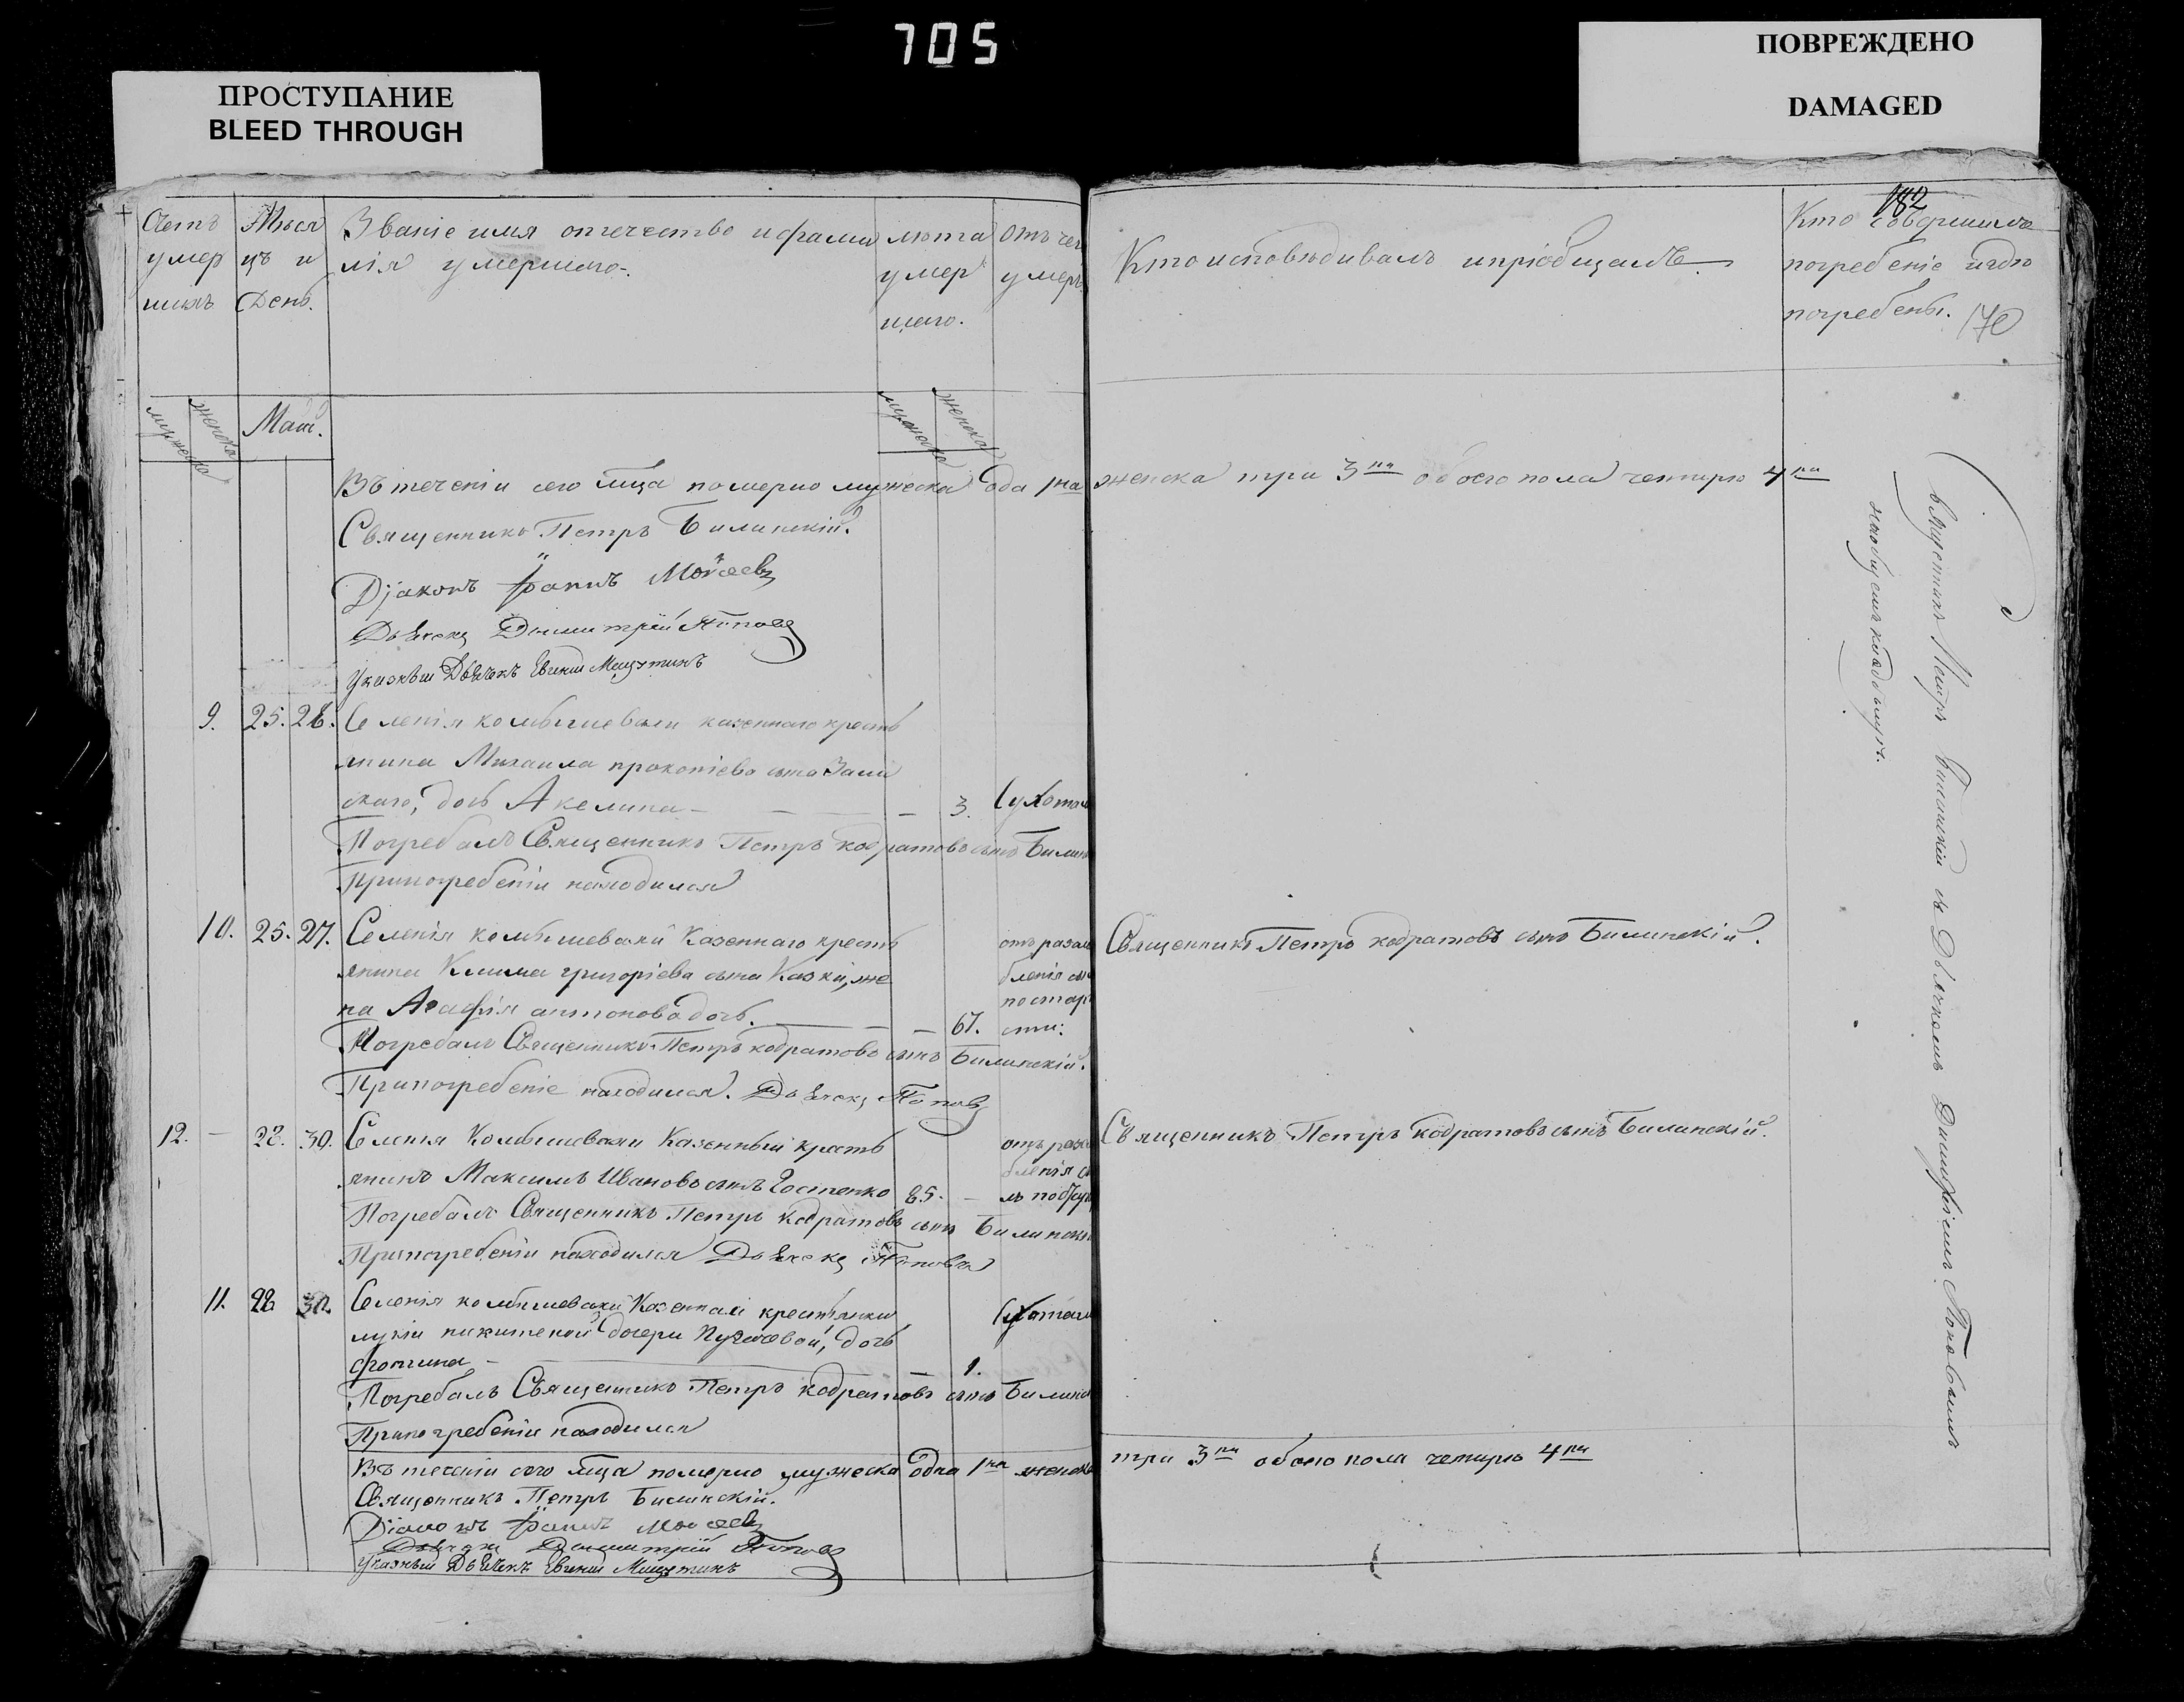 705
ПРОСТУПАНИЕ
BLEED THROUGH
ПОВРЕЖДЕНО
DAMAGED
182
170
Счетъ умер шихъ
Мѣся цъ и День.
Званіе имя отечество и фами
лія умершаго.
лѣта умер шаго.
Отъ чег умеръ
Кто исповѣдивалъ и пріобщалъ
Кто совершилъ
погребеніе и гдѣ
погребены.
мужеска
женска
Маій.
мужеска
женска
Въ теченіи сего мца померло мужеска одна 1на женска три 3ри обоего пола четыре 4ри
Священникъ Петръ Билинскій.
Діаконъ Моисеевъ
Дьячекъ Димитрій Поповъ
Указный Дьячекъ Евфимій
9. 25. 28. Селенія комышевахи казеннаго кресть
янина Михаила прокопіева сына
скаго, дочь Акелина — — 3. Сухотою
Погребалъ Священникъ Петръ кодратовъ сынъ Билин
При погребеніи находился
10. 25. 27. Селенія комышевахи Казеннаго кресть
янина Клима григоріева сына Казки, же
на Агафія антонова дочь. — — 67.
отъ разсла
бленія
по стар
сти:
Священникъ Петръ кодратовъ сынъ Билинскій.
Погребалъ Священникъ Петръ кодратовъ сынъ Билинскій.
При погребеніе находился. Дьячекъ Поповъ
12. — 28. 30. Селенія Комышевахи Казенный кресть
янинъ Максимъ Ивановъ сынъ Костенко 85. —
отъ разсла
бленія
Священникъ Петръ Кодратовъ сынъ Билинскій.
Погребалъ Священникъ Петръ кодратовъ сынъ Билински
При погребеніи находился Дьячекъ Поповъ
11. 28 30. Селенія комышевахи Казенной крестьянки
лукіи никитеной дочери Пугачовой, дочь
фотина — — 1. Сухотою
Погребалъ Священникъ Петръ кодратовъ сынъ Билинс
При погребеніи находился
Въ теченіи сего мца померло мужеска одна 1на женска три 3ри обоего пола четыре 4ри
Священникъ Петръ Билинскій.
Діаконъ Моисеевъ
Дьячекъ Димитрій Поповъ
Указный Дьячекъ Евфимій
Священникъ Петръ Билинскій съ Дьячкомъ Димитріемъ Поповымъ
на общемъ кладбищѣ.